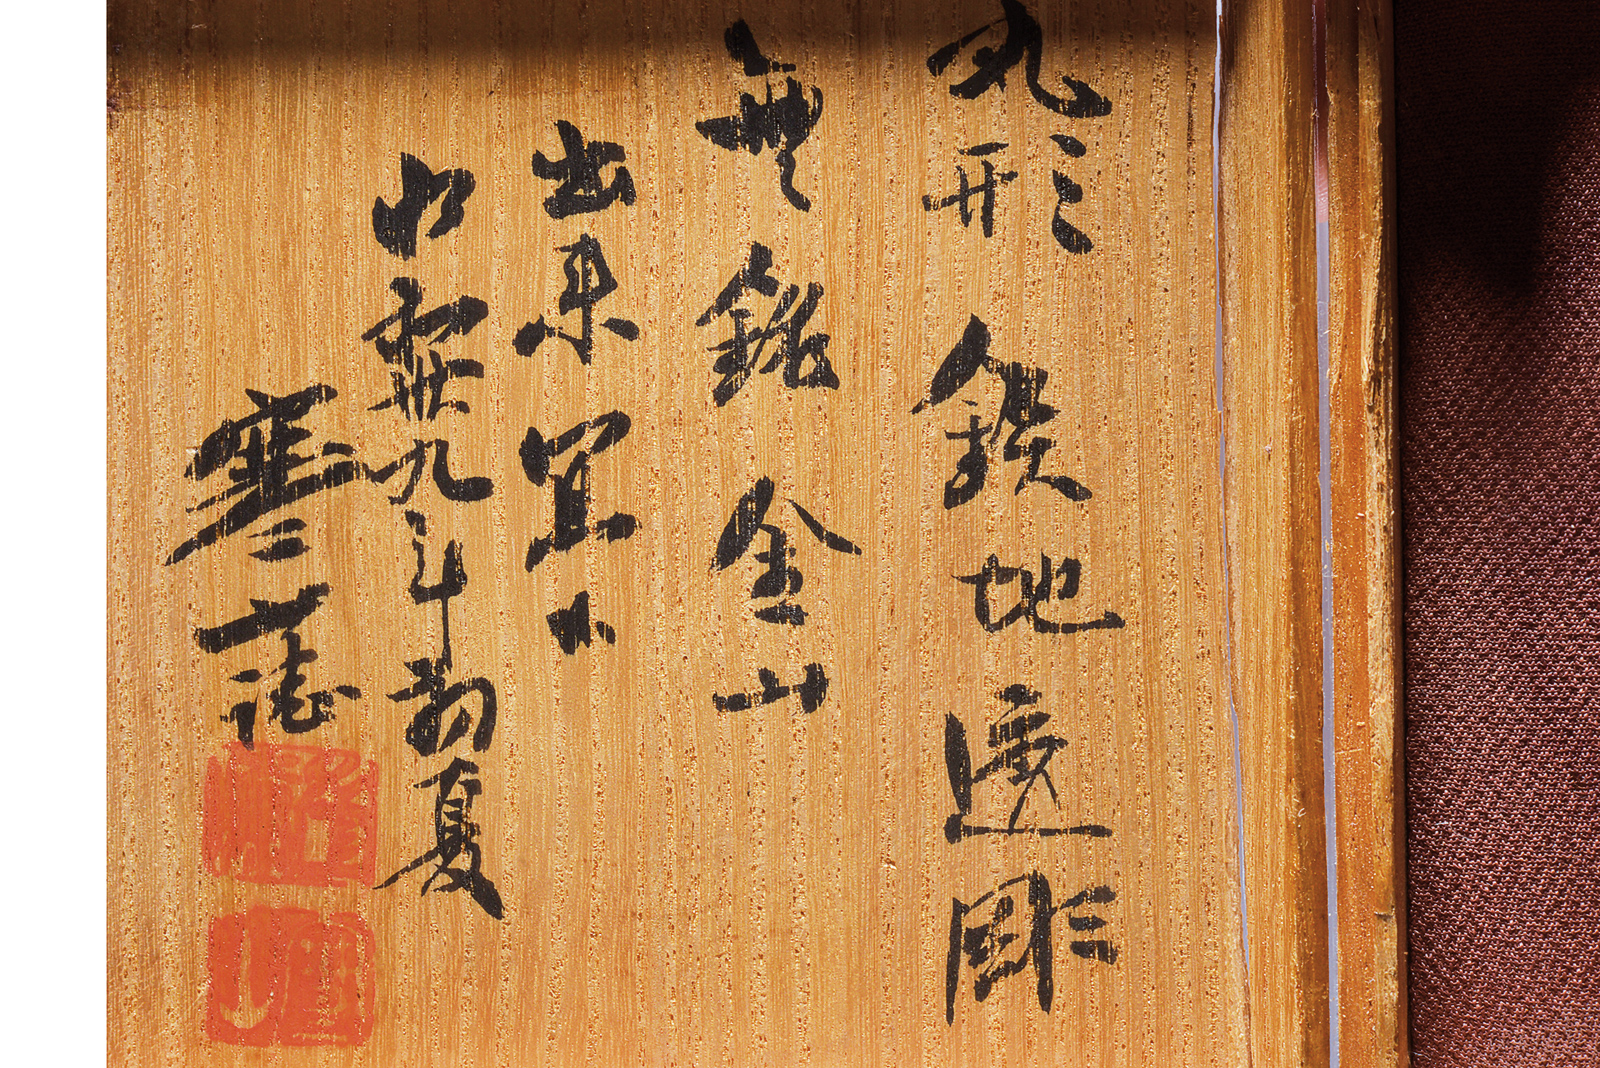 丸形 鉄地透彫
無銘 金山
出来宜
昭和卅九年初夏
寒山誌